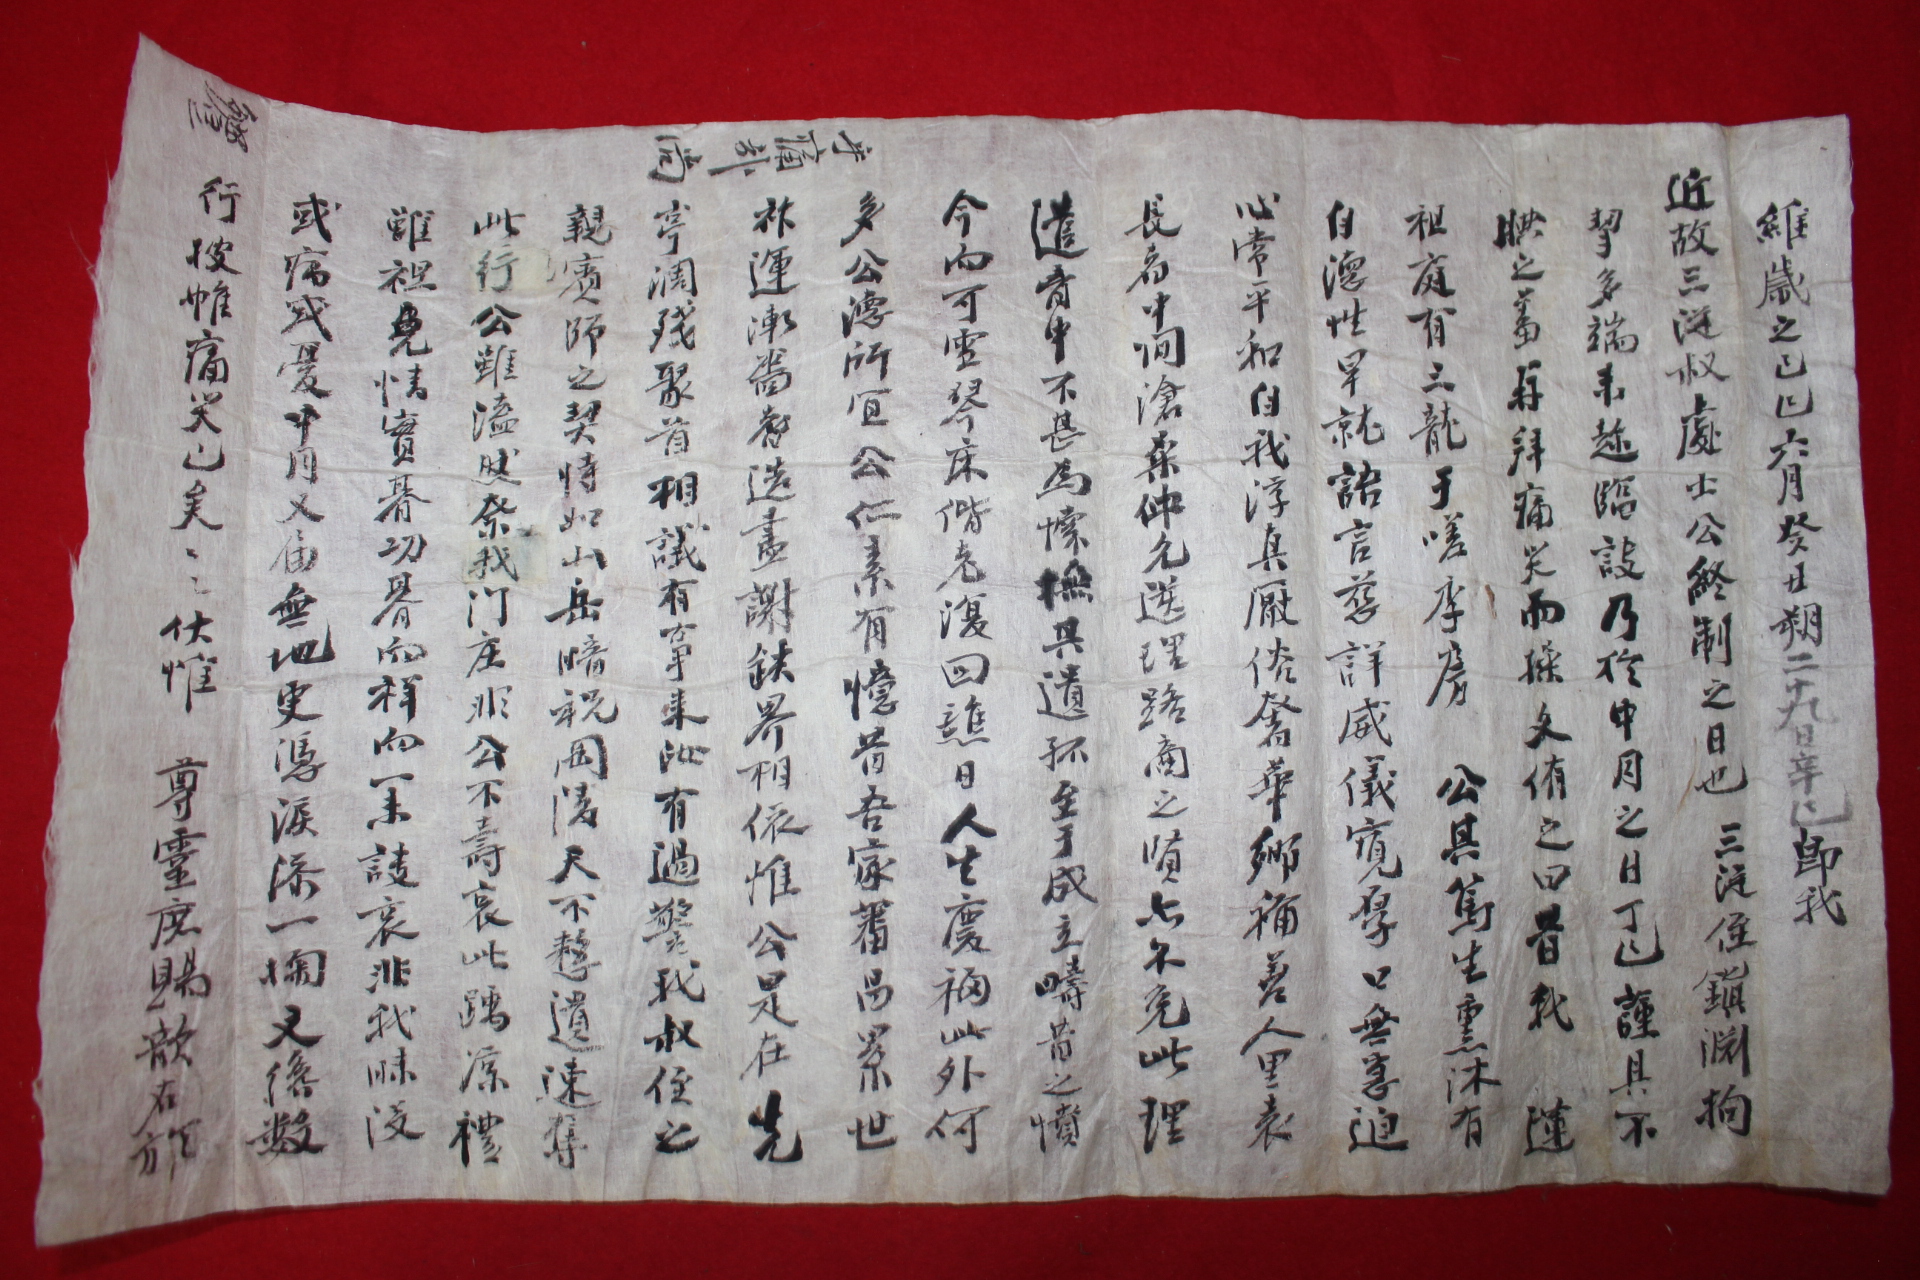 維歲之己巳六月癸丑朔二十九日辛巳卽我
近故三從叔處士公終制之日也 三從侄鎭淵拘
掣多端未趁臨設乃於中月之日丁巳謹具不
腆之羞再拜痛哭而操文侑之曰昔我 蓮
祖庭有三龍于嗟季房 公其篤生熏沐有
自德性早就語言慈詳威儀寬厚口無惡迫
心常平和自我淳眞厭俗奢華鄕稱善人里表
長者中間滄桑仲允送理路商之賵亦不免此理
遣音中不甚爲懷撫其遺孤至于成立疇昔之憤
今向可雪琴床偕老復回譙日人生慶福此外何
多公德所宜公仁素有憶昔吾家蕃昌累世
祚運漸嗇耆造盡謝鉄界相依惟公是在先
亭凋殘聚首相議有事來詢有過警我叔侄之
親賓師之契恃如山岳暗祝岡陵天不憖遺遽速奪
此行公雖溘然奈我門庄非公不壽哀此踽凉禮
雖袒免情實朞功朞而祥而一未諼哀非我昧沒
或病或憂中月又届無地更慿淚添一掬文繼數
行披帷痛哭已矣已矣伏惟 尊靈庶賜歆右